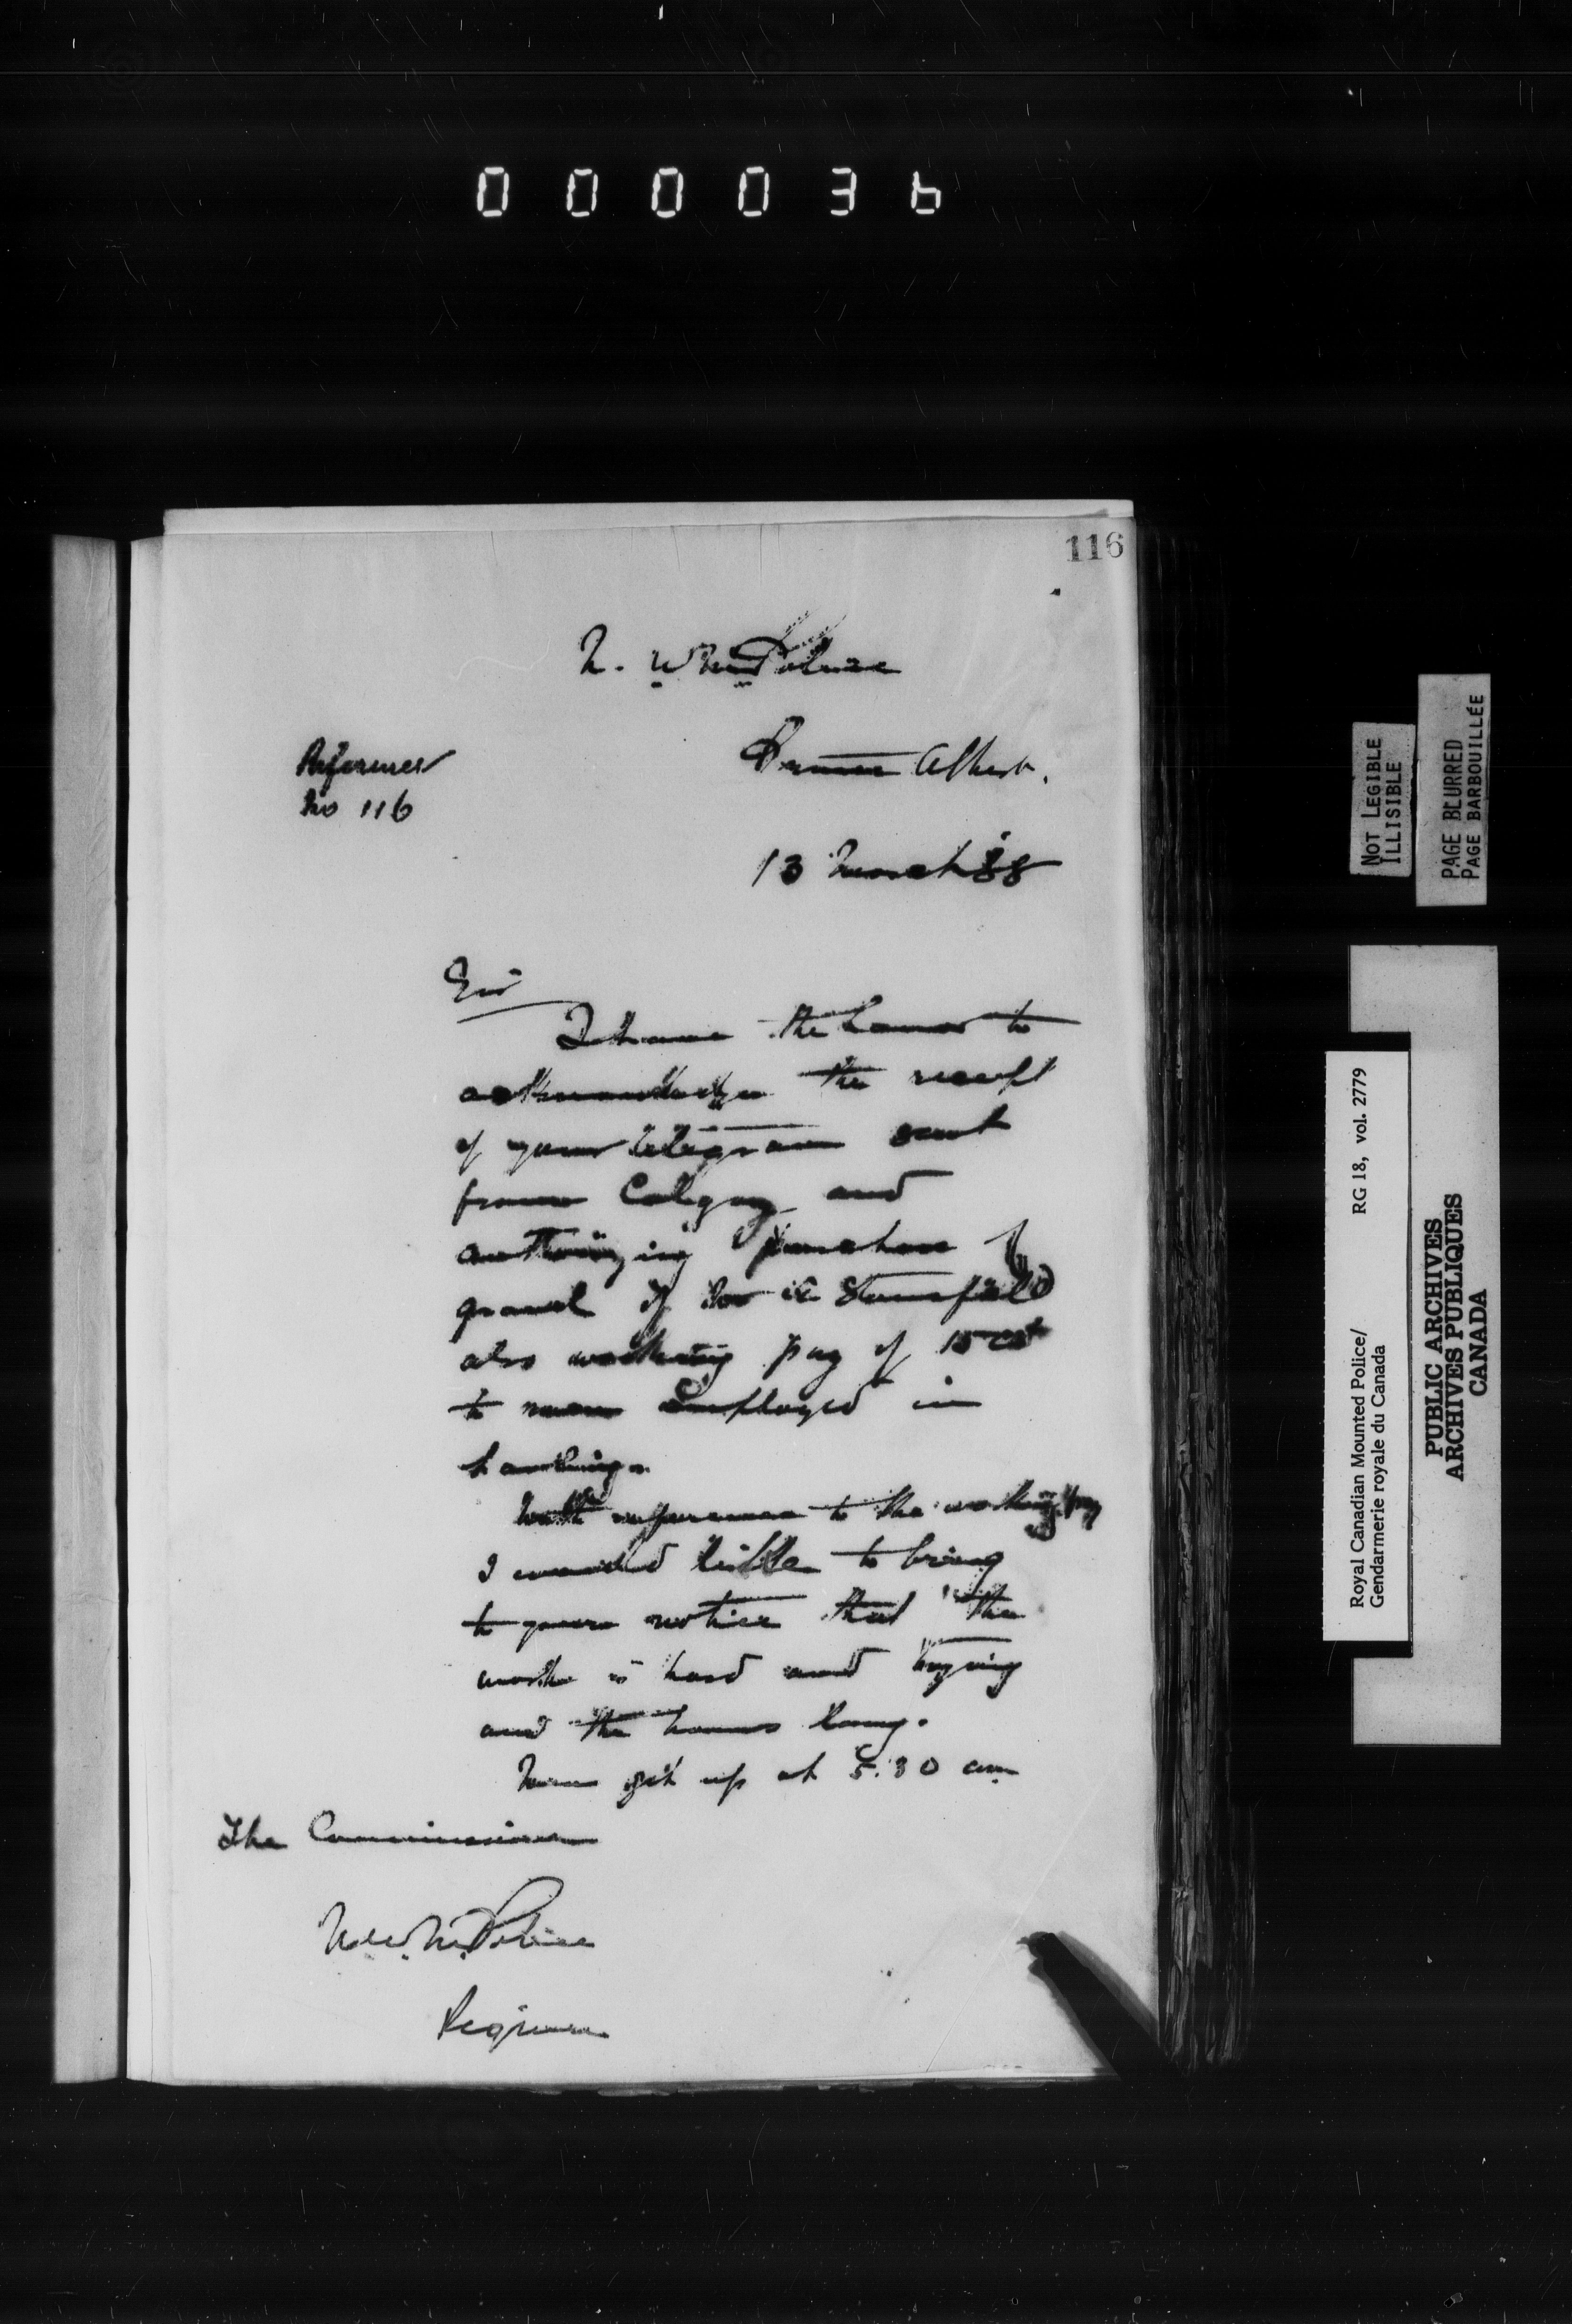 000036
116
N. W. M. Police
Reference
No 116
Prince Albert.
13 March 88
Sir
I have the honor to
acknowledge the receipt
of your telegram sent
from Calgary and
authorizing purchase of
gravel of Stansfield
also working pay of 15 cts
to men employed in
hauling.
With reference to the working pay
I would like to bring
to your notice that the
work is hard and trying
and the hours long.
Men get up at 5.30 am
The Commissioner
N.W.M. Police
Regina
NOT LEGIBLE
ILLISIBLE
PAGE BLURRED
PAGE BARBOUILLÉE
Royal Canadian Mounted Police/ RG 18, vol. 2779
Gendarmerie royale du Canada
PUBLIC ARCHIVES
ARCHIVES PUBLIQUES
CANADA